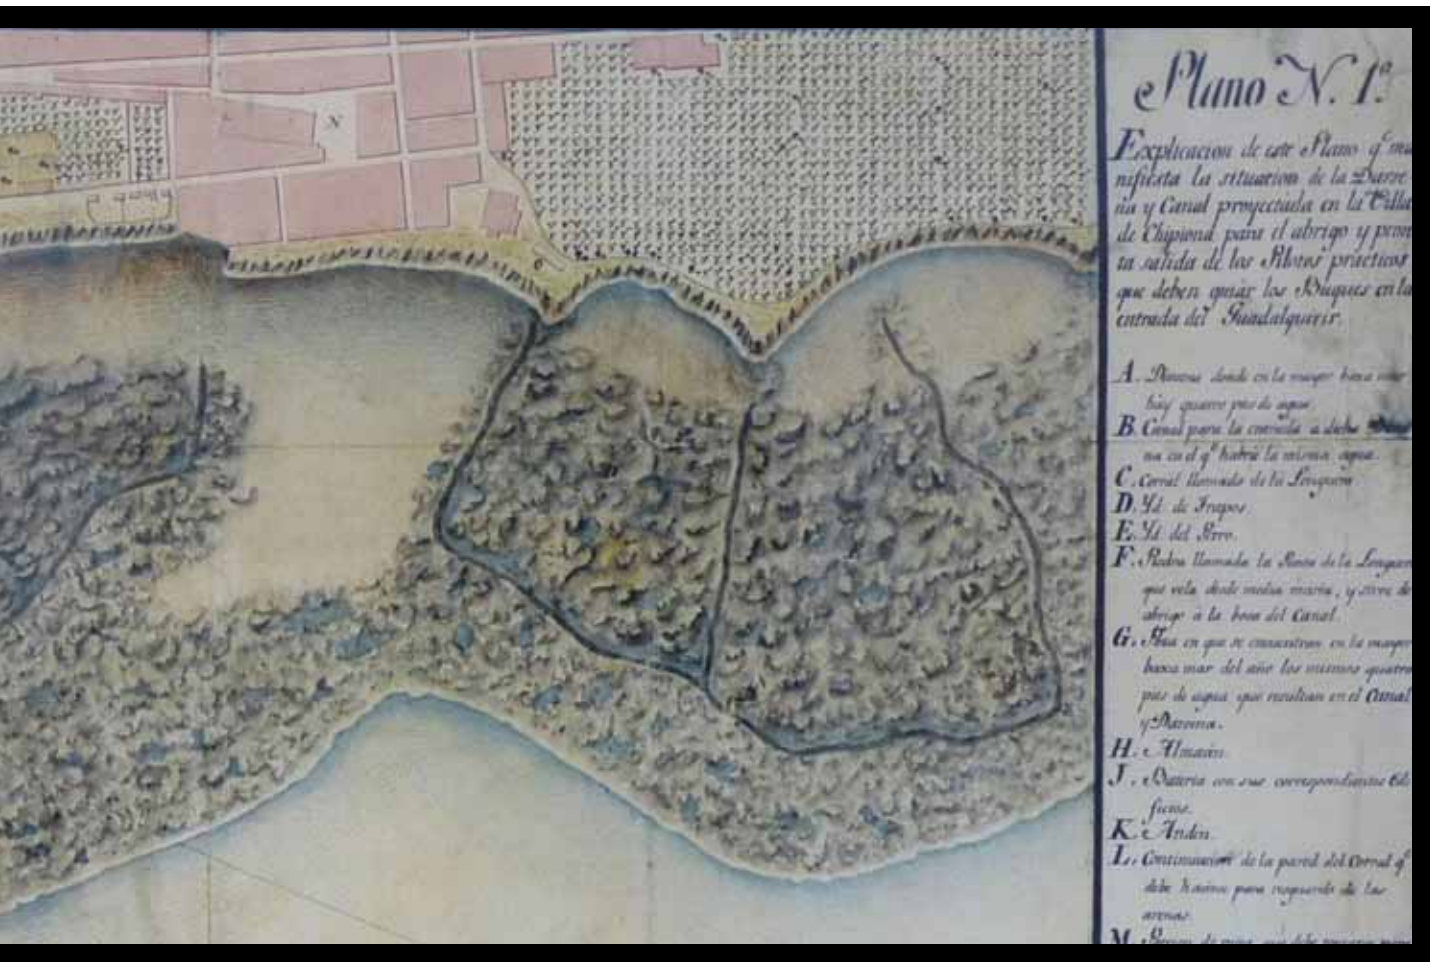 N
Plano N. 1.º
Explicacion de este Plano q.e ma
nifiesta la situacion de la Darse
na y Canal proyectada en la Villa
de Chipiona para el abrigo y pron
ta salida de los Pilotos practicos
que deben guiar los Buques en la
entrada del Guadalquivir.
A. Darsena donde en la mayor baxa mar
hay quatro pies de agua
B. Canal para la entrada a dicha
na en el q.e habrá la misma agua.
C. Corral llamado de la Longuera
D. Yd. de Trapos.
E. Yd. del Perro.
F. Piedra llamada la de la
que vela desde media marea, y sirve de
abrigo á la boca del Canal.
G. en que se encuentran en la mayor
baxa mar del año los mismos quatro
pies de agua que resultan en el Canal
y Darsena.
H. Almacén
J. Bateria con sus correspondientes Edi
ficios.
K. Andén.
L. Continuacion de la pared del Corral q.e
debe hacerse para resguardo de las
arenas.
M. de que debe